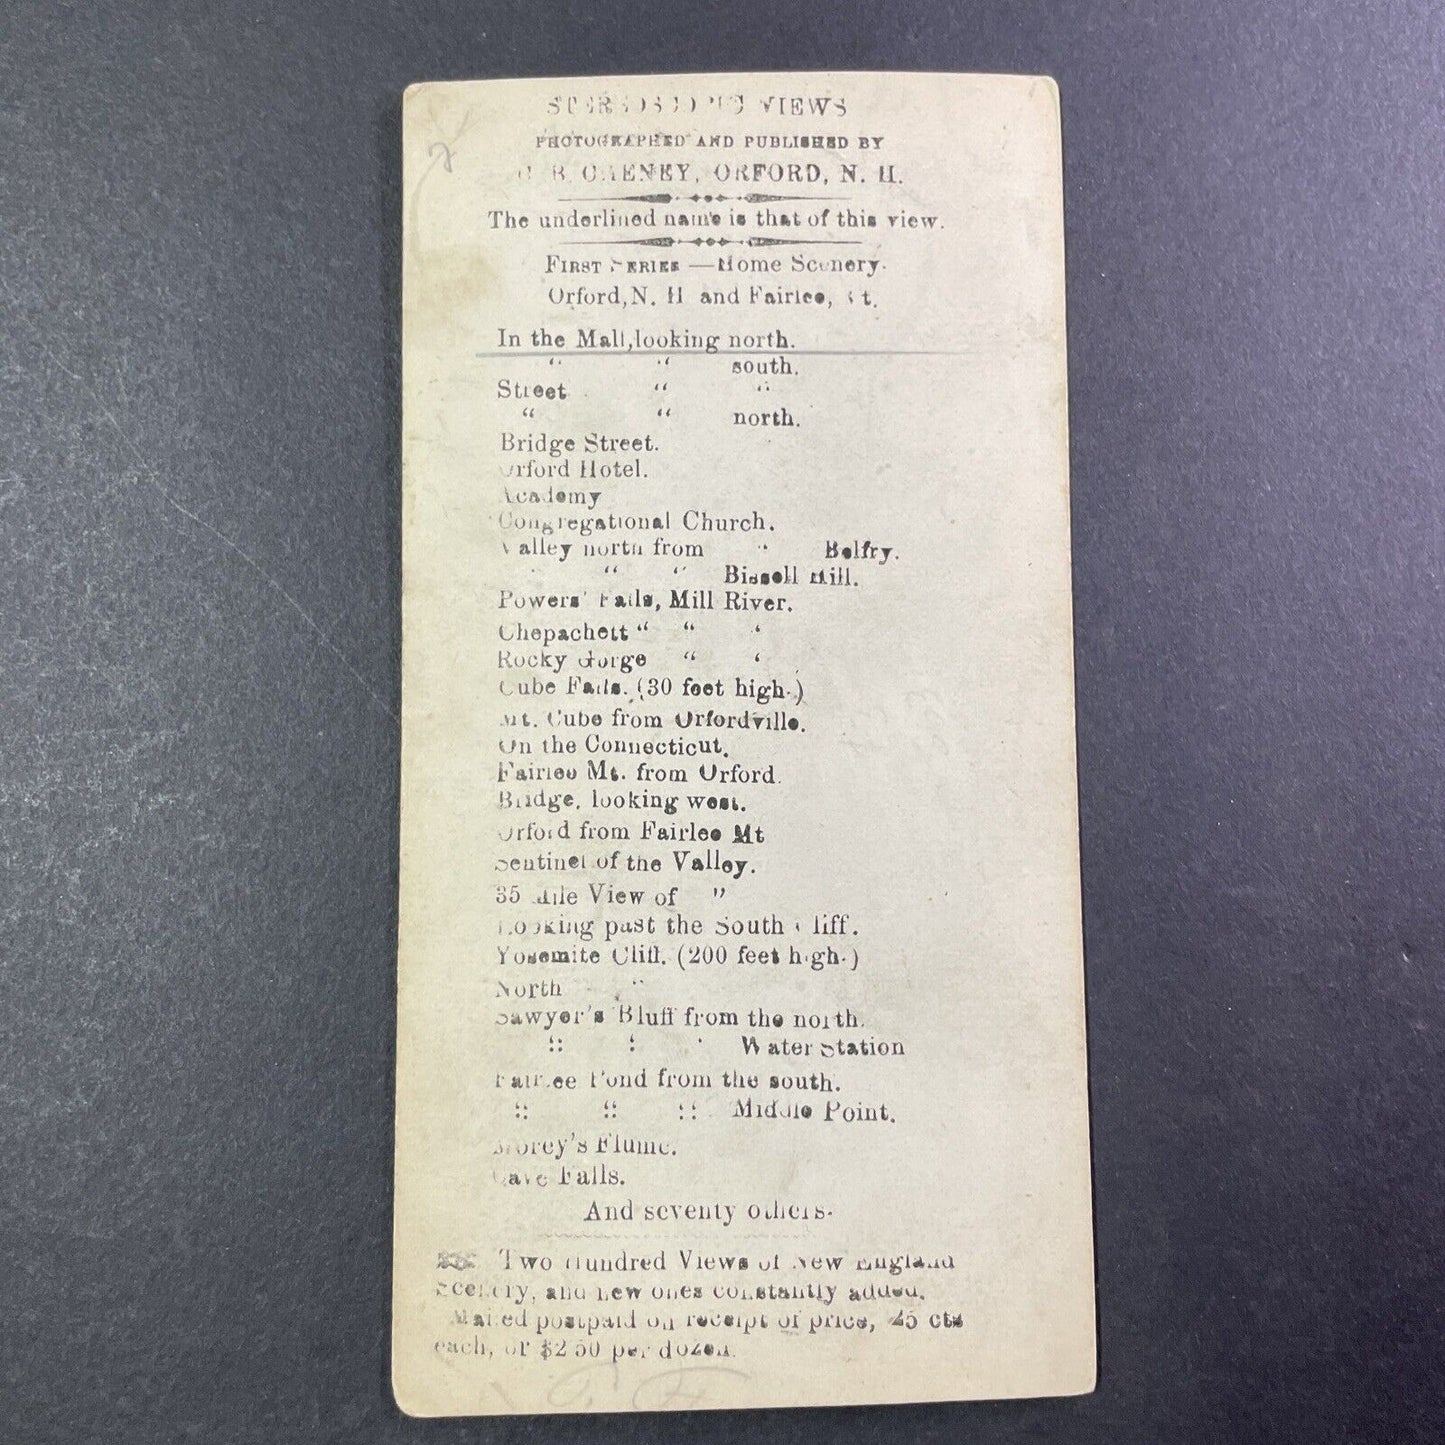 STEREOSCOPIC VIEWS
PHOTOGRAPHED AND PUBLISHED BY
B. CHENEY, ORFORD, N. H.
The underlined name is that of this view.
FIRST SERIES — Home Scenery.
Orford, N. H. and Fairlee, Vt.
In the Mall, looking north.
“ “ south.
Street “ “
“ “ north.
Bridge Street.
Orford Hotel.
Academy
Congregational Church.
Valley north from “ Belfry.
“ “ Bissell Hill.
Powers' Falls, Mill River.
Chepachett “ “ “
Rocky Gorge “ “
Cube Falls. (30 feet high.)
Mt. Cube from Orfordville.
On the Connecticut.
Fairlee Mt. from Orford.
Bridge, looking west.
Orford from Fairlee Mt
Sentinel of the Valley.
35 Mile View of "
Looking past the South Cliff.
Yosemite Cliff. (200 feet high.)
North “
Sawyer's Bluff from the north.
“ “ “ Water Station
Fairlee Pond from the south.
“ “ “ Middle Point.
Morey's Flume.
Cave Falls.
And seventy others.
Two Hundred Views of New England
Scenery, and new ones constantly added.
Mailed postpaid on receipt of price, 25 cts
each, or $2.50 per dozen.